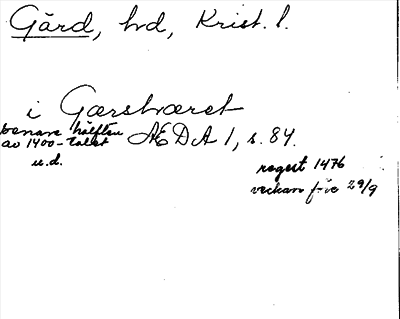 Gärd, hd, Krist. l.
i Gærstræret
senare hälften
av 1400-talet ÆDA 1, s. 84.
u.d.
regest 1476
veckan f-ie 29/9